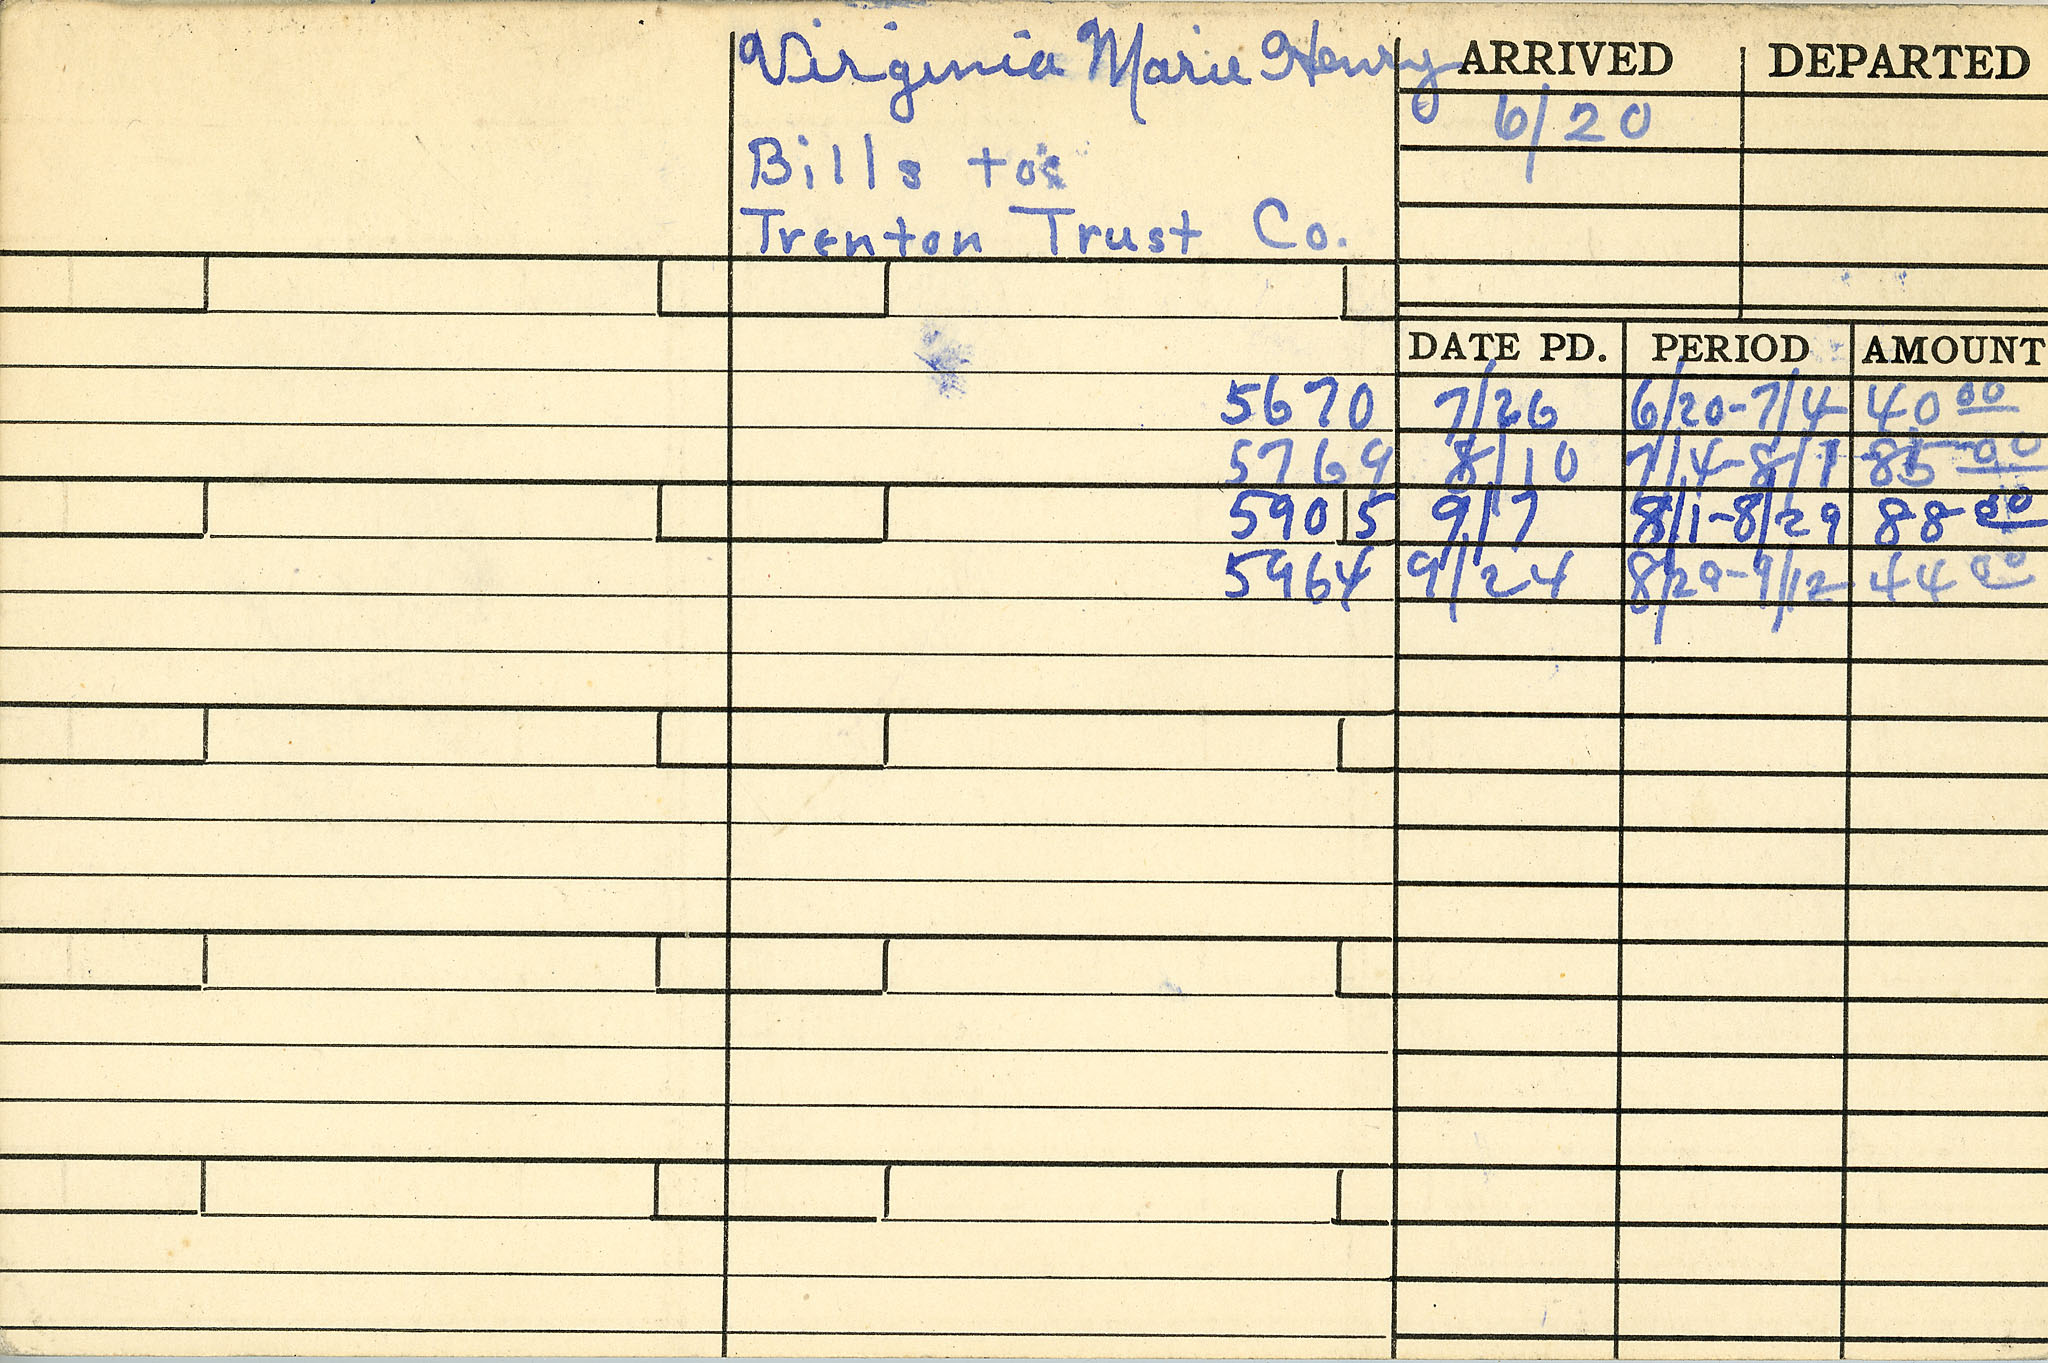 Virginia Marie Henry
Bills to:
Trenton Trust Co.
ARRIVED DEPARTED
6/20
DATE PD. PERIOD AMOUNT
5670 7/26 6/20-7/4 40 00
5769 8/10 7/4-8/1 00
5905 9/7 8/1-8/29 88 00
5964 9/24 8/29-9/12 44 00